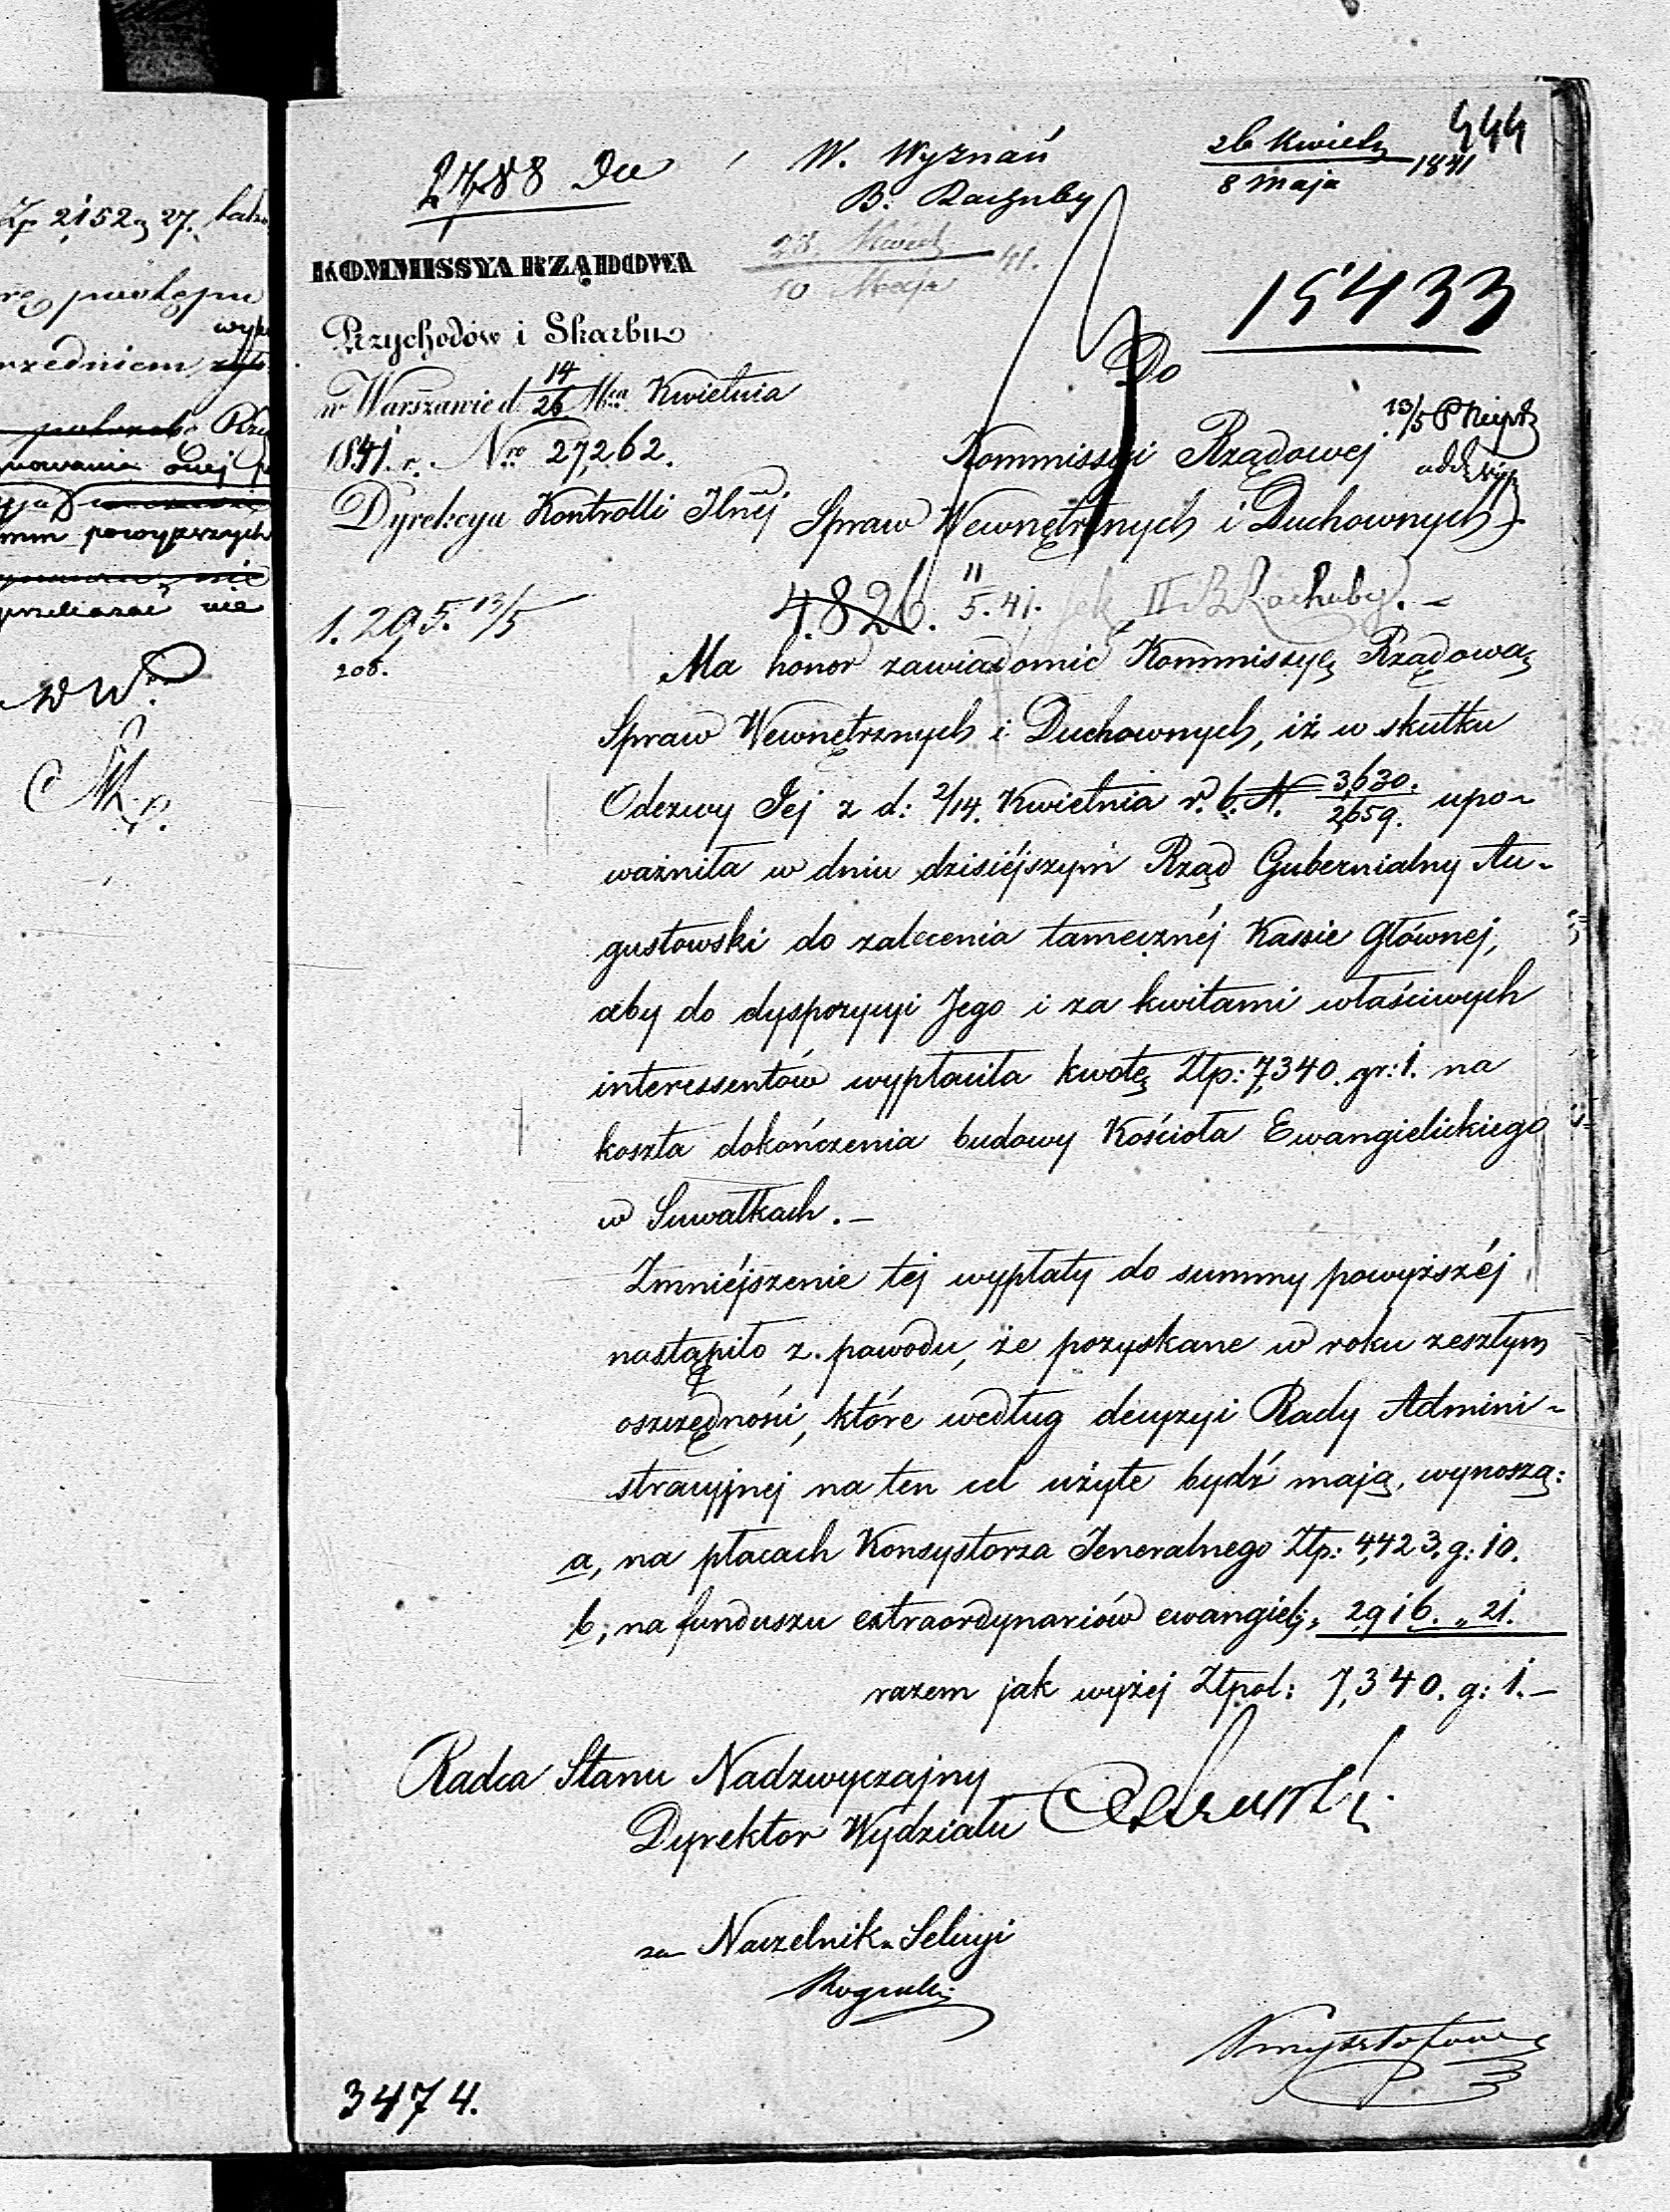 Zp 2152 g 27.
powyższych
444
2788 Du
W. Wyznań
B. Rachuby
26 Kwiet
8 Maja 1841
28. Kwiet
10 Maja 41.
KOMMISSYA RZĄDOWA
15433
Przychodów i Skarbu
Do
w Warszawie d. 14/26 Mca Kwietnia
13/5
1841. r. Nro 27,262.
Kommissyi Rządowej
Dyrekcya Kontrolli Jlnéj
Spraw Wewnętrznych i Duchownych
4826. 11/5. 41. II B. Rachuby. –
1. 295. 13/5
208.
Ma honor zawiadomić Kommissyę Rządową
Spraw Wewnętrznych i Duchownych, iż w skutku
Odezwy Jej z d: 2/14. Kwietnia r. b. N. 3,630./2,659. upo-
ważniła w dniu dzisiéjszym Rząd Gubernialny Au-
gustowski do zalecenia tamecznéj Kassie Głównej,
aby do dyspozycyi Jego i za kwitami właściwych
interessentów wypłaciła kwotę Złp: 7,340. gr: 1. na
koszta dokończenia budowy Kościoła Ewangielickiego
w Suwałkach. –
Zmniéjszenie téj wypłaty do summy powyższéj
nastąpiło z powodu, że pozyskane w roku zeszłym
oszczędności, które według decyzyi Rady Admini-
stracyjnej na ten cel użyte bydź mają, wynoszą:
a, na płacach Konsystorza Jeneralnego Złp: 4,423. g: 10.
b, na funduszu extraordynariów ewangiel: „ 2,916. „ 21.
razem jak wyżej Złpol: 7,340. g: 1. –
Radca Stanu Nadzwyczajny
Dyrektor Wydziału
za Naczelnika Sekcyi
3474.